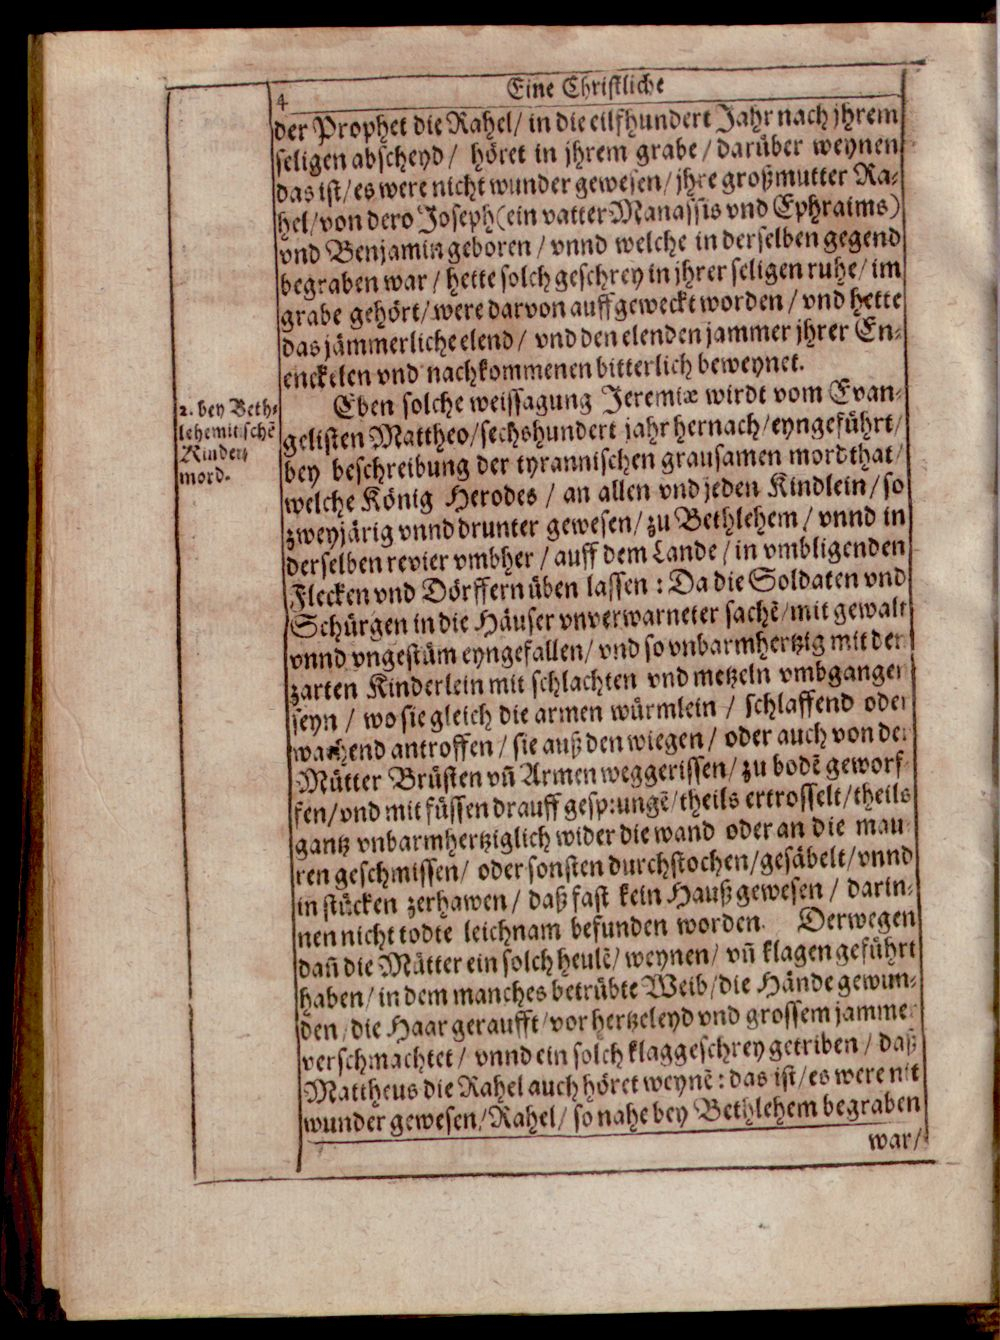 4
Eine Christliche
der Prophet die Rahel/ in die eilffhundert Jahr nach jhrem
seligen abscheyd/ höret in jhrem grabe/ darüber weynen
das ist/ es were nicht wunder gewesen/ jhre großmutter Ra-
hel/ von dero Joseph (ein vatter Manassis vnd Ephraims)
vnd Benjamin geboren/ vnnd welche in derselben gegend
begraben war/ hette solch geschrey in jhrer seligen ruhe/ im
grabe gehört/ were darvon auffgeweckt worden/ vnd hette
das jämmerliche elend/ vnd den elenden jammer jhrer En-
enckelen vnd nachkommenen bitterlich beweynet.
2. bey Beth-
lehemitischẽ
Kinder
mord.
Eben solche weissagung Jeremiæ wirdt vom Evan-
gelisten Mattheo/ sechshundert jahr hernach/ eyngeführt/
bey beschreibung der tyrannischen grausamen mordthat/
welche König Herodes/ an allen vnd jeden Kindlein/ so
zweyjärig vnnd drunter gewesen/ zu Bethlehem/ vnnd in
derselben revier vmbher/ auff dem Lande/ in vmbligenden
Flecken vnd Dörffern üben lassen: Da die Soldaten vnd
Schürgen in die Häuser vnverwarneter sachẽ/ mit gewalt
vnnd vngestüm eyngefallen/ vnd so vnbarmhertzig mit der
zarten Kinderlein mit schlachten vnd metzeln vmbgangen
seyn/ wo sie gleich die armen würmlein/ schlaffend oder
wachend antroffen/ sie auß den wiegen/ oder auch von der
Mütter Brüsten vñ Armen weggerissen/ zu bodẽ geworf-
fen/ vnd mit füssen drauff gesprungẽ/ theils ertrosselt/ theils
gantz vnbarmhertziglich wider die wand oder an die mau-
ren geschmissen/ oder sonsten durchstochen/ gesäbelt/ vnnd
in stücken zerhawen/ daß fast kein Hauß gewesen/ darin-
nen nicht todte leichnam befunden worden. Derwegen
dañ die Mütter ein solch heulẽ/ weynen/ vñ klagen geführt
haben/ in dem manches betrübte Weib/ die Hände gewun-
den/ die Haar geraufft/ vor hertzeleyd vnd grossem jammer
verschmachtet/ vnnd ein solch klaggeschrey getriben/ daß
Mattheus die Rahel auch höret weynẽ: das ist/ es were nit
wunder gewesen/ Rahel/ so nahe bey Bethlehem begraben
war/